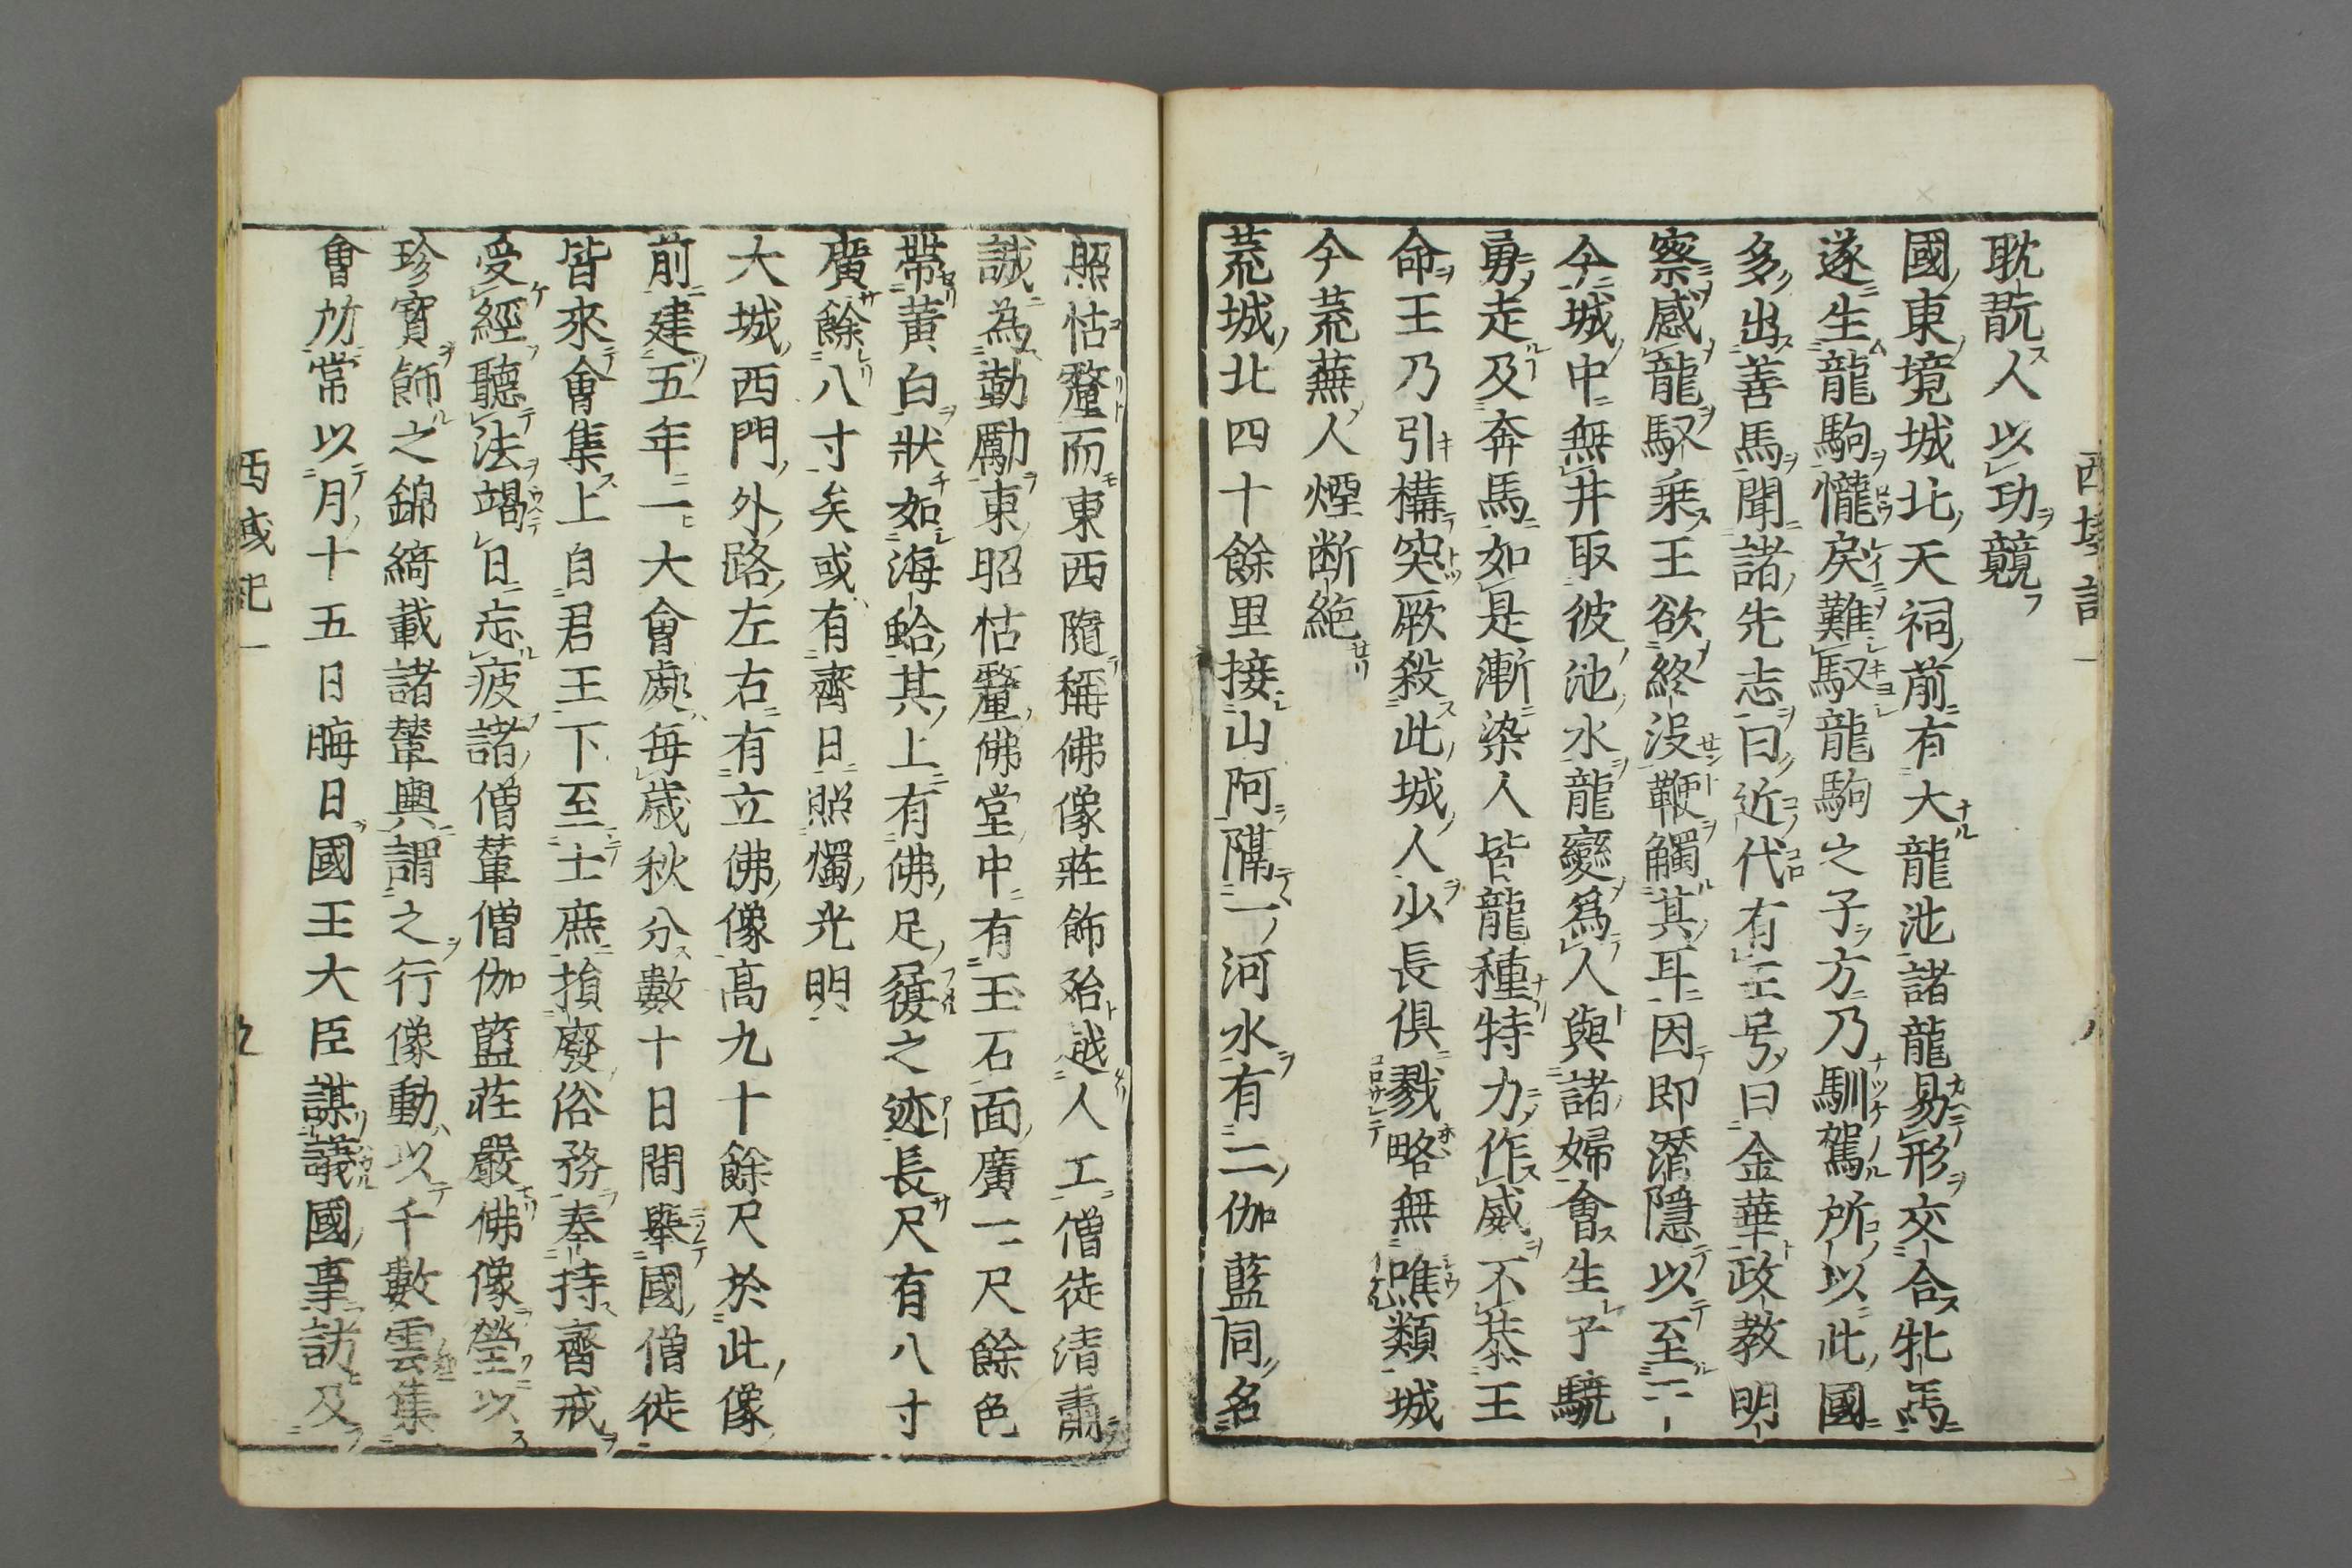 西域記一
八
耽翫人以功競
國東境城北天祠前有大龍池諸龍易形交合牝馬
遂生龍駒㦬戾難馭龍駒之子方乃馴駕所以此國
多出善馬聞諸先志曰近代有王号曰金華政教明
察感龍馭乗王欲終没鞭觸其耳因即潛隱以至于
今城中無井取彼池水龍變爲人與諸婦會生子驍
勇走及奔馬如是漸染人皆龍種特力作威不恭王
命王乃引構突厥殺此城人少長俱戮略無噍類城
今荒蕪人煙断絶
荒城北四十餘里接山阿隔一河水有二伽藍同名
照怙釐而東西隨稱佛像莊飾殆越人工僧徒清肅
誠為勤勵東昭怙釐佛堂中有玉石面廣二尺餘色
帶黄白狀如海蛤其上有佛足履之迹長尺有八寸
廣餘八寸矣或有齋日照燭光明
大城西門外路左右有立佛像高九十餘尺於此像
前建五年一大會處毎歳秋分數十日間舉國僧徒
皆來會集上自君王下至士庶損廢俗務奉持齋戒
受經聽法竭日忘疲諸僧伽藍莊嚴佛像瑩以
珍寳飾之錦綺載諸輦輿謂之行像動以千數雲集
會所常以月十五日晦日國王大臣謀議國事訪及
西域記一
九